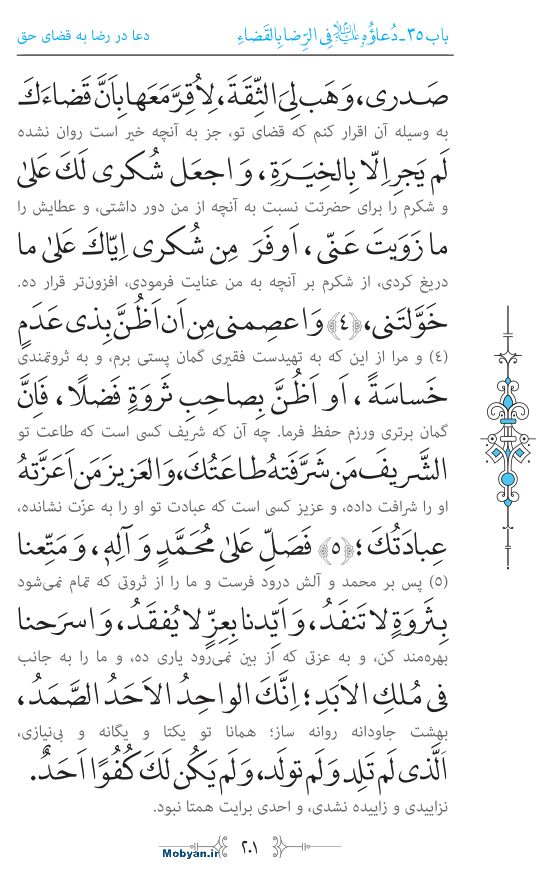 باب ۳۵ - دُعاؤُه عَلَيْهِ السَّلَامُ فِی الرِّضا بِالقَضاءِ دعا در رضا به قضای حق
صَدری، وَ هَب لِیَ الثِّقَةَ، لِاُقِرَّ مَعَها بِاَنَّ قَضاءَكَ
به وسیله آن اقرار کنم که قضای تو، جز به آنچه خیر است روان نشده
لَم يَجرِ اِلّا بِالخِيَرَةِ، وَ اجعَل شُكری لَكَ عَلیٰ
و شکرم را برای حضرتت نسبت به آنچه از من دور داشتی، و عطایش را
ما زَوَيتَ عَنّی، اَوفَرَ مِن شُكری اِيّاكَ عَلیٰ ما
دریغ کردی، از شکرم بر آنچه به من عنایت فرمودی، افزون‌تر قرار ده.
خَوَّلتَنی، ﴿٤﴾ وَ اعصِمنی مِن اَن اَظُنَّ بِذی عَدَمٍ
(٤) و مرا از این که به تهیدست فقیری گمان پستی برم، و به ثروتمندی
خَساسَةً، اَو اَظُنَّ بِصاحِبِ ثَروَةٍ فَضلًا، فَاِنَّ
گمان برتری ورزم حفظ فرما. چه آن که شریف کسی است که طاعت تو
الشَّريفَ مَن شَرَّفَتهُ طاعَتُكَ، وَ العَزيزَ مَن اَعَزَّتهُ
او را شرافت داده، و عزیز کسی است که عبادت تو او را به عزّت نشانده،
عِبادَتُكَ؛ ﴿٥﴾ فَصَلِّ عَلیٰ مُحَمَّدٍ وَ آلِهٖ، وَ مَتِّعنا
(٥) پس بر محمد و آلش درود فرست و ما را از ثروتی که تمام نمی‌شود
بِثَروَةٍ لا تَنفَدُ، وَ اَيِّدنا بِعِزٍّ لا يُفقَدُ، وَ اسرَحنا
بهره‌مند کن، و به عزتی که از بین نمی‌رود یاری ده، و ما را به جانب
فی مُلكِ الاَبَدِ؛ اِنَّكَ الواحِدُ الاَحَدُ الصَّمَدُ،
بهشت جاودانه روانه ساز؛ همانا تو یکتا و یگانه و بی‌نیازی،
اَلَّذی لَم تَلِد وَ لَم تولَد، وَ لَم يَكُن لَكَ كُفُوًا اَحَدٌ.
نزاییدی و زاییده نشدی، و احدی برایت همتا نبود.
۲۰۱
Mobyan.ir